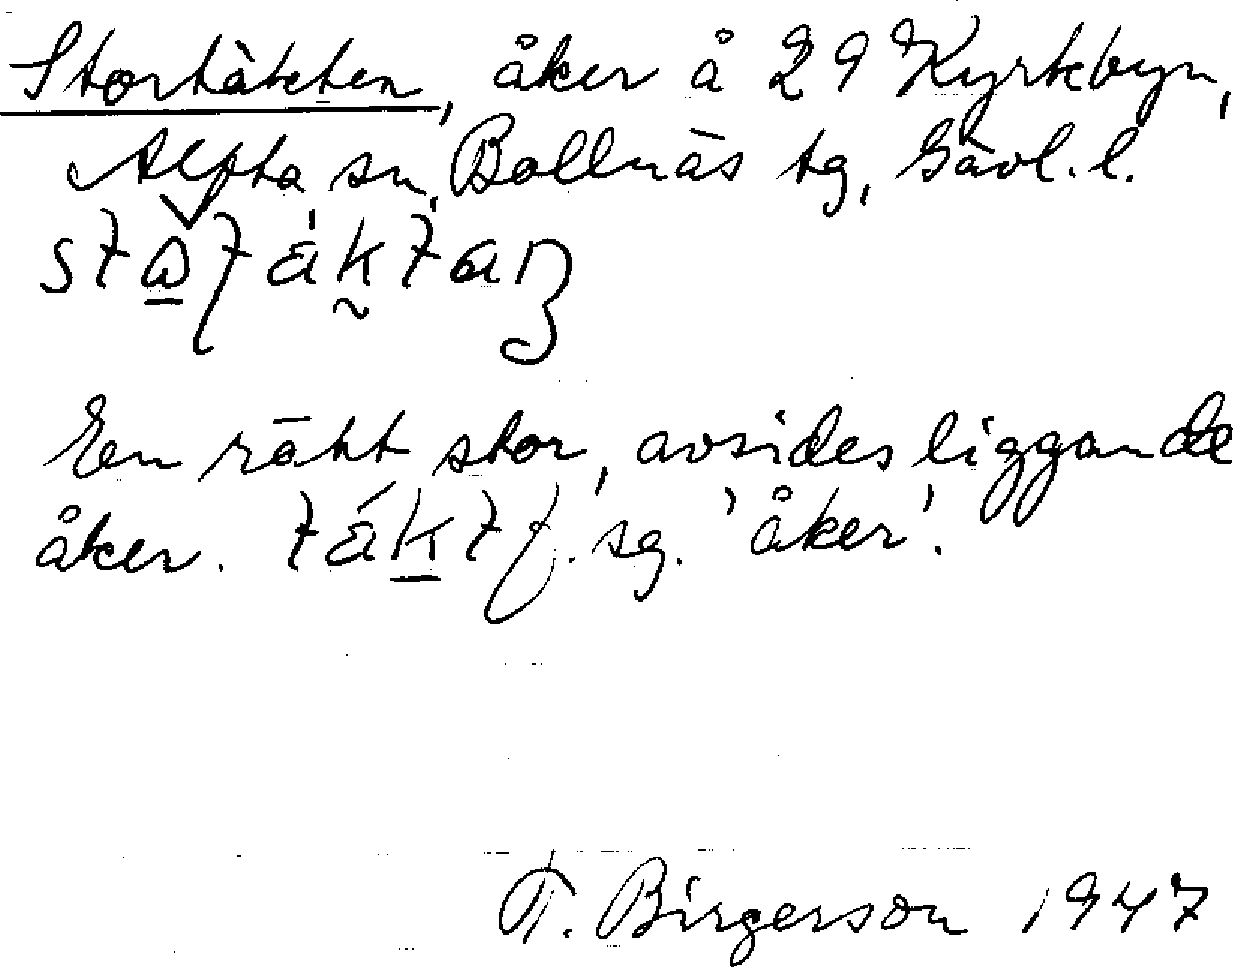 Stortäkten, åker å 29 Kyrkbyn,
Alfta sn, Bollnäs tg, Gävl. l.
En rätt stor, avsides liggande
åker. f. sg. 'åker'.
T. Birgerson 1947